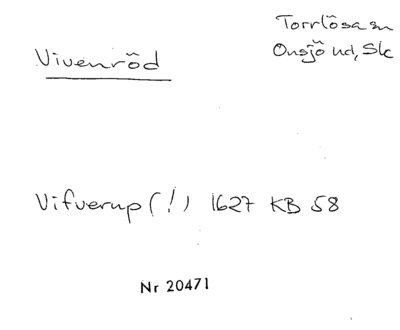 Torrlösa sn
Vivenröd
Onsjö hd, Sk
Vifverup (!) 1627 KB 58
Nr 20471